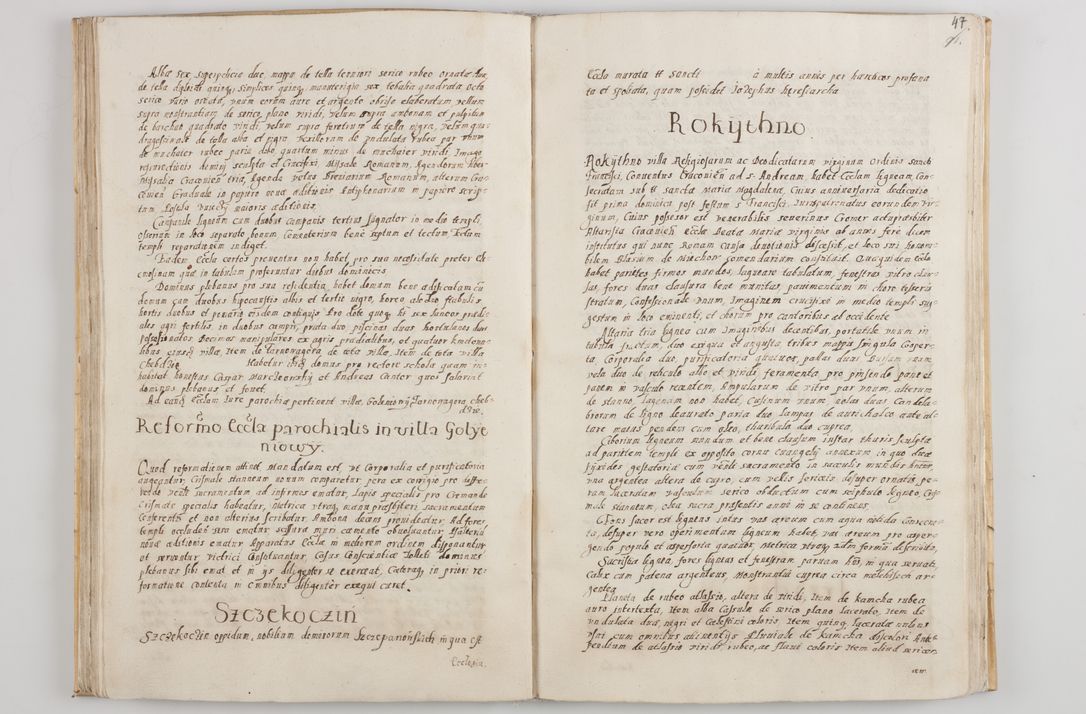 Albæ sex, superpelicie duæ, mappæ de tella tenuiori serico rubeo ornatæ duæ,
de tella quinq, simplices quinq, manutergia sex tobalia quadrata octo
serico vario ornata, unum eorum auro et argento elaboratum vellum
supra monstrantiam de serico plano viridi, velum supra ambonam et pulpitum
de barchan quadrato viridi, velum supra feretrum de tella nigra, velum qua
dragesimale de tella alba et nigra vexillorum de undulata rubeo par unum
de muchaier rubeo paria duo, quartum minus de muchaier viridi Imago
resurectionis domini sculpta et Crucifixi, Missale Romanum, Agendorum liber
Missalia Cracovien tria, Agenda vetus Breviarium Romanum, alterum Cra-
covien Graduale in papiro novæ æditionis Antiphonarium in papiro scrip-
tum Postila maioris æditionis.
Campanile ligneum cum duobus campanis tertius signator in medio templi,
ossarium in loco separato, bonum Cementerium bene septum et tectum Tectum
templi reparatione indiget.
Eadem Eccla certos proventus non habet pro sua necessitate preter ele-
mosinam quæ in tabulam proferuntur diebus dominicis.
Dominus plebanus pro sua residentia habet domum bene ædificatam cū
domum cum duobus hipocaustis albis et tertio nigro, horeo duo stabulis
hortis duobus et penario eisdem contiguis Pro dote quoq hi sex laneos prædi-
ales agri fertilis in duobus campis, prata duo piscinas duas hortulanos duos
possessionatos Decimas manipulares ex agris prædialibus, et quatuor kmetona-
libus eiusdē villæ, Item de Tarnonagora de tota villa, Item de tota villa
Chebdzie Habetur ibidē domus pro rectore scholæ quam in-
habitat honestus Caspar et Andreas Cantor quos salariat
dominus plebanus et fovet.
Ad eandē Ecclam Iure parochiæ pertinent villæ, Goleniowÿ Tarnonagora Cheb-
dzie.
Reformō Eccla parochialis in villa Golye
niowy.
Quod reformationem attinet Mandatum est, ut Corporalia et purificatoria
augeantur, Crismale stanneum novum comparetur pera ex corigio pro
rendo sacramentum ad infirmos ematur, Lapis specialis pro Cremando
Crismate specialis habeatur, Metrica utraq manu præsbiteri sacramentum
Conferentis et non alterius scribatur, Ambona decens provideatur, Ad fores
templi occludend sera ematur scissura muri camento obvolvantur Psalterium
novæ æditionis ematur Apparatus Eccla in meliorem ordinem disponantur
et serventur vitrici Constituantur, Casus Conscientiæ Tolleti dominus
plebanus sibi emat et in ijs diligenter se exerceat, Cæteraq in priori re-
formatione contenta in omnibus diligenter exequi curet.
Szczekoczin
Szczekoczin oppidum, nobilium dominorum Szczepanowskich in qua est
Ecclesia.
47
Eccla murata tt Sancti à multis annis per hæreticos prophana
ta et spoliata, quam possidet Iosephus heresiarcha
Rokÿthno
Rokÿthno villa Religiosarum ac Deodicatarum virginum Ordinis Sancti
Francisci, Conventus Cracovien ad s. Andream, habet Ecclam ligneam, Con-
secratam sub tt sanctæ Mariæ Magdalenæ, Cuius anniversaria dedicatio
fit prima dominica post festum s Francisci, Iurispatronatus earundem vir-
ginum, Cuius possesor est venerabilis Severinus Gomer
Altarista Cracovien Eccla Beatæ Mariæ virginis ab annis fere decem
institutus qui nunc Romam causa devotionis discessit, et loco sui hono-
bilem Blasium de Miechow Comendarium constituit. Quæquidem Eccla
habet parietes firmos mundos, laqueare tabulatum, fenestras vitro clau-
sas, fores duas clausura bene munitas, pavimentum in choro tesseris
stratum, Confessionale unum, Imaginem crucifixi in medio templi Sug-
gestum in loco eminenti, et chorum pro cantoribus ab occidente
Altaria tria lignea cum Imaginibus decentibus, portatile unum in
tabula fractum, duo exigua et angusta tribus mappis singula Cooper-
ta, Corporalia duo, purificatoria quatuor, pallas duas Bursam unam
vela duo de reticulo albo et viridi feramenta pro pinsendo pane et
panem in vasculo recentem, Ampularum de vitro par unum, alterum
de stanno lagenam non habet, Cusinum unum, nolas duas Candela-
brorum de ligno deaurato paria duo Lampas de aurichalco ante al-
tare maius pendens cum oleo, thuribula duo cuprea,
Ciborium ligneum mundum et bene clausum instar thuris sculptæ
ad parietem templi ex opposito cornu euangelij annexum in quo duæ
pixides gestatoria cum sacramento in sacculis mundis
una argentea altera de cupro, cum vellis sericeis desuper ornatis, pe-
ram laceratam vasculum serico obductum cum scipulo ligneo, Cris-
male stanneum, olea sacra præsentis anni in se continens
Fons sacer est ligneus intus vas æreum cum aqua nitida Conserva-
ta, desuper vero operimentum ligneum habet, vas æreum pro asper-
gendo populo et asperforia quatuor, Metrica utraq iuxta formā describitur,
Sacristia lignea, fores ligneas et fenestram parvam hñs, in qua servati,
Calix cum patena argenteus, Monstrantia cuprea circa melchisech ar-
gentea
Planeta de rubeo atlassio, altera de viridi, Item de kamcha rubea
auro intertexta, Item alba Casula de serico plano lacerato, Item de
undulata duæ, nigri et Coelestini coloris Item quinq laceratæ
usui cum omnibus atinentijs Pluviale de kamcha discolori Ante-
pendium de atlassio viridi rubeo, ac flavi coloris Item aliud sericeum
item